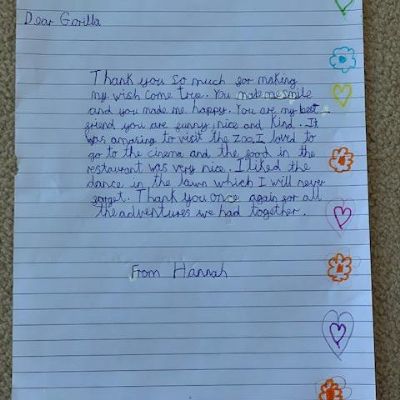 Dear Gorilla
Thank you so much for making
my wish come true. You made me smile
and you made me happy. You are my best
friend you are funny, nice and kind. It
was amazing to visit the zoo, I loved to
go to the cinema and the food in the
restaurant was very nice. I liked the
dance in the lawn which I will never
forget. Thank you once again for all
the adventures we had together.
From Hannah